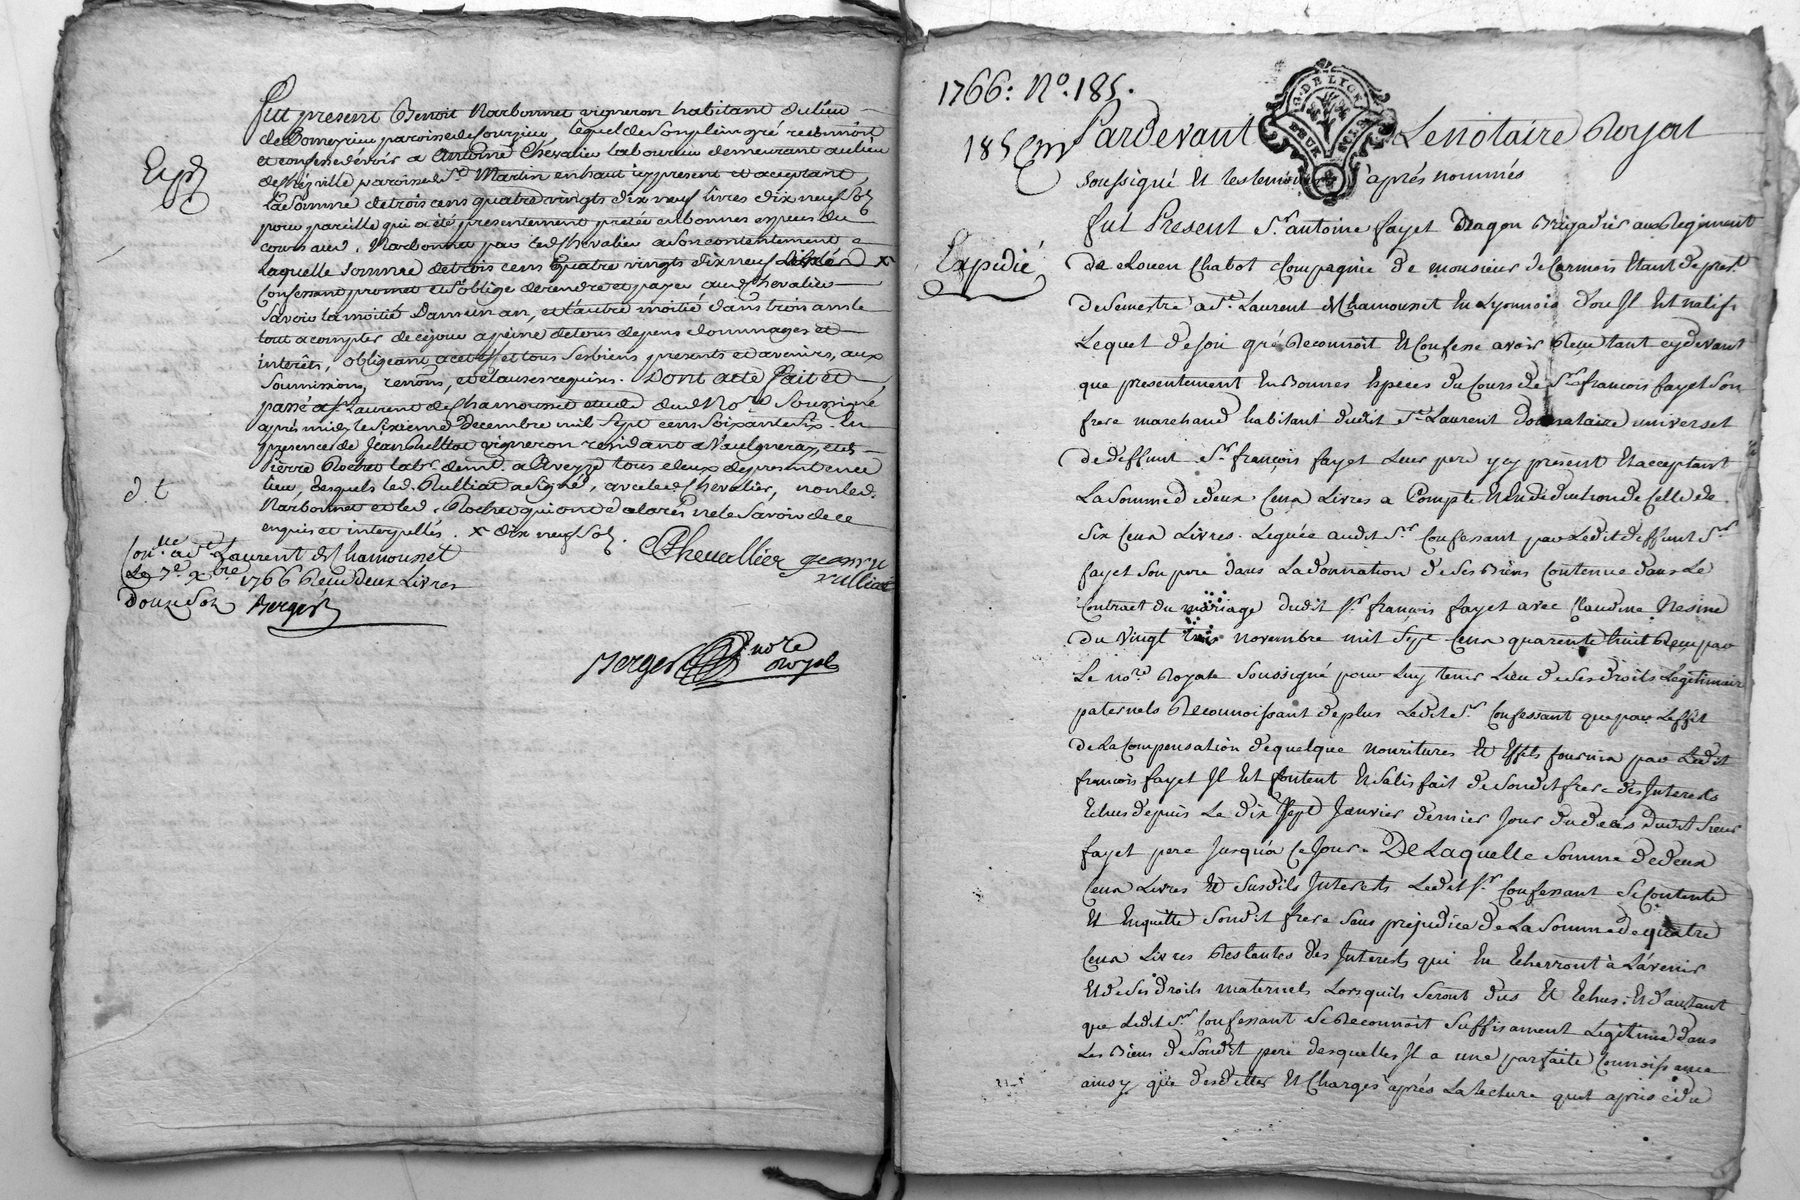 fut present Benoit Narbonnet vigneron habitant du lieu
de paroisse de Sourzieu, lequel de son plein gré reconnoit
et confesse devoir a Antoine Chevalier laboureur demeurant au lieu
paroisse St. Martin en haut icy present et acceptant
Expd
La Somme de trois cens quatre vingts dix neuf livres dix neuf Sols
pour pareille qui a été presentement pretée en bonnes especes du
cours aud. Narbonnet par led. Chevalier a son contentement
Laquelle somme de trois cens quatre vingts dix neuf livres x
Confessant promet et s'oblige de rendre et payer aud. Chevalier
Savoir la moitié dans un an, et l'autre moitié dans trois ans le
tout a compter de ce jour a peine de tous depens dommages et
interêts, obligeant a cet effet tous ses biens presents et avenirs, aux
Soumissions, renons, et clauses requises. Dont acte fait et
passé a St. Laurent de Chamousset etude dud. Nore Soussigné
après midy le Sixieme Decembre mil Sept cens Soixante Six. En
presence de Jean vigneron residant a Vaulgneray, et de
Pierre Rochet labr. demt. a Aveyze tous deux de present en ce
lieu, desquels led. Rulliat a signé, avec led. Chevalier, non led.
d. t
Narbonnet et led. Rochet qui ont declarés ne le Savoir de ce
enquis et interpellés. x dix neuf Sols.
Con.lle a St. Laurent de Chamousset
Le 7e. xbre 1766 Reçu deux Livres
Douze Sols Berger
Chevallier
rulliat
Berger nore
royal
1766: No. 185.
185
Pardevant Le notaire Royal
G. DE LYON
DEUX SOLS
soussigné Et les temoins après nommés
Expedié
fut Present Sr. antoine fayet Dragon Brigadier au Regiment
de Chabot Compagnie de monsieur de Carmois Etant de prest.
de Semestre a St. Laurent de Chamousset En Lyonnois d'ou Il est natif
Lequel de son gré Reconnoit Et Confesse avoir Reçu tant cy devant
que presentement En Bonnes Especes du Cours de Sr. françois fayet Son
frere marchand habitant dudit St. Laurent donnataire universel
de deffunt Sr. françois fayet Leur pere y cy présent Et acceptant
La Somme de deux Cens Livres a Compte Et En deduction de Celle de
Six Cens Livres. Leguée audit Sr. Confessant par Ledit deffunt Sr.
fayet Son pere dans La donnation de Ses Biens Contenue dans Le
Contract du mariage dudit Sr. françois fayet avec Claudine
du Vingt trois novembre mil Sept Cens quarente huit Reçu par
Le nore. Royale Soussigné pour Luy tenir Lieu de Ses droits Legitimaire
paternels Reconnoissant de plus Ledit Sr. Confessant que par L'effet
de La Compensation de quelque nouritures Et Effets fournis par Ledit
francois fayet Il Est Content Et Satisfait de Sondit frere des Interests
Echus depuis Le dix Sept Janvier dernier Jour du decés dudit Sieur
fayet pere Jusqu'a Ce Jour. De Laquelle Somme de deux
Cens Livres Et Susdits Interests Ledit Sr. Confessant Se Contente
Et Enquitte Sondit frere Sans préjudice de La Somme de quatre
Cens Livres Restantes des Interests qui En Echerront à L'avenir
Et de Ses droits maternels Lorsquils Seront dus Et Echus. Et d'autant
que Ledit Sr. Confessant Se Reconnoit Suffisament Legitimé dans
Les Biens de Sondit pere desquelles Il a une parfaite Connoissance
ainsy que des dettes Et Charges après La lecture quil a pris